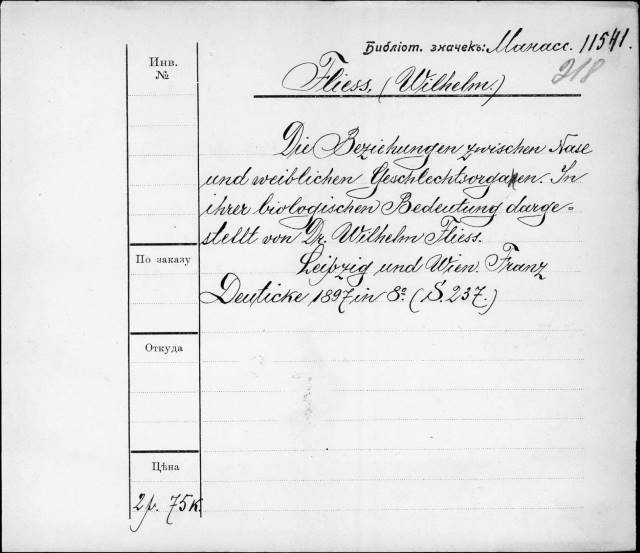 Библіот. значекъ: Манасс. 11541.
218
Инв.
№
Fliess, (Wilhelm.)
Die Beziehungen zwischen Nase
und weiblichen Geschlechtsorganen. In
ihrer biologischen Bedeutung darge=
stellt von Dr. Wilhelm Fliess.
Leibzig und Wien. Franz
Deuticke 1897 in 8º (S. 237.)
По заказу
Откуда
Цѣна
2 р. 75 к.